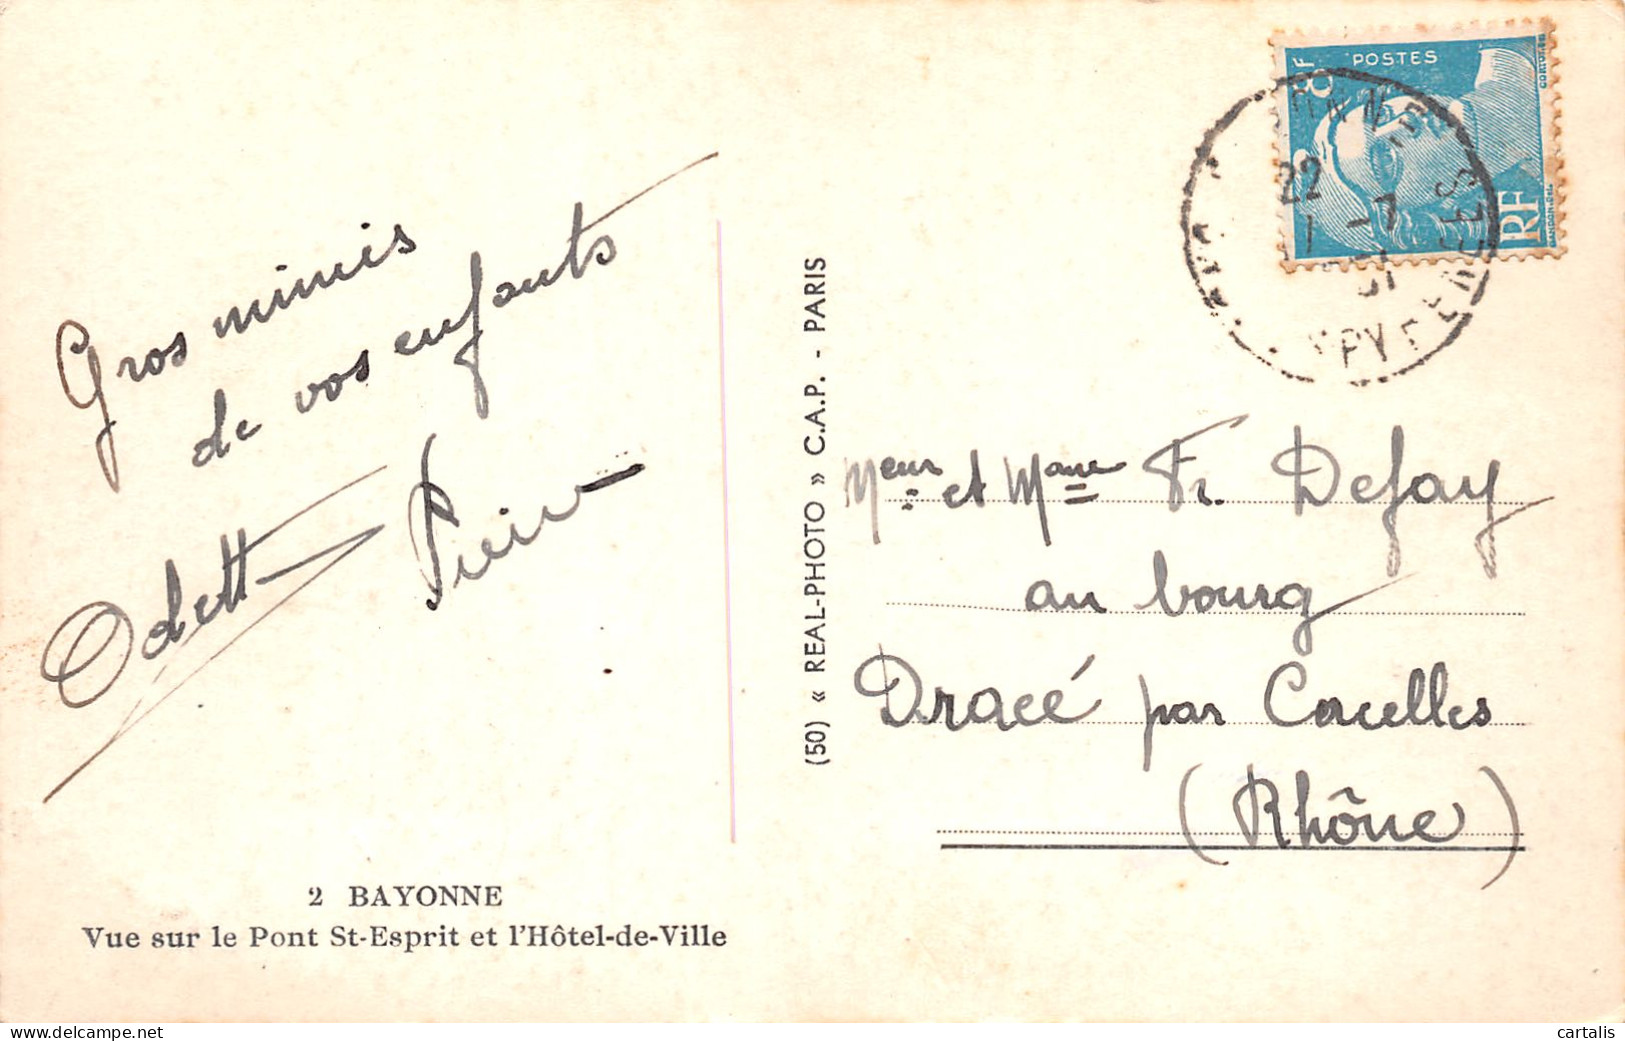 Gros mimis
de vos enfants
Odette Pierre
2 BAYONNE
Vue sur le Pont St-Esprit et l'Hôtel-de-Ville
(50) « REAL-PHOTO » C.A.P. - PARIS
POSTES
8F
RF
22
Meur et Mame Fr. Defay
au bourg
Dracé par Corcelles
(Rhône)
cartalis
www.delcampe.net